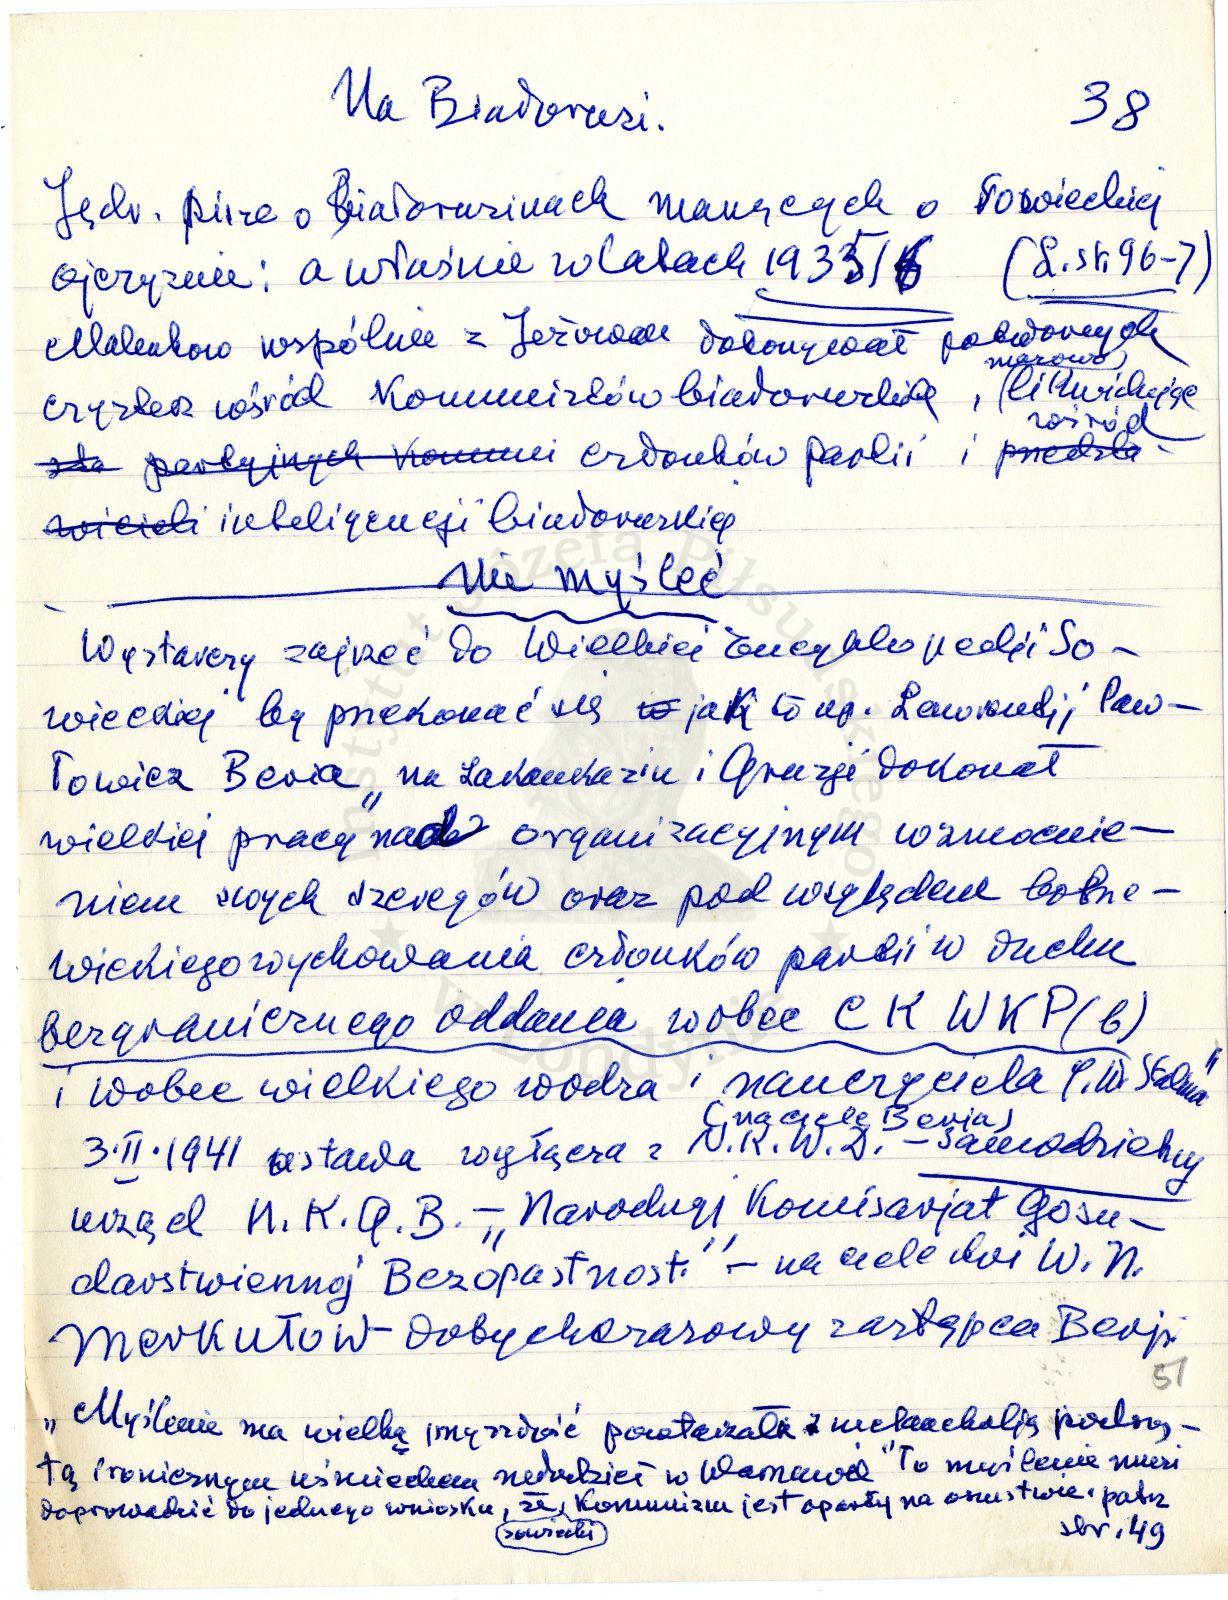 Na Białorusi.
38
Jędr. pisze o Białorusinach marzących o sowieckiej
ojczyźnie: a właśnie w latach 1935/6 (L. str. 96-7)
Malenkow wspólnie z Jeżowem dokonywał potwornych
masowo
czystek wśród Kommunistów białoruskich, likwidując
wśród
sta partyjnych Kommuni członków partii i przedsta-
wicieli inteligencji białoruskiej
Nie myśleć
Wystarczy zajrzeć do Wielkiej Encyklopedji So-
wieckiej by przekonać się to jak to np. Lawrentij Paw-
łowicz Beria „na Zakaukaziu i Gruzji dokonał
wielkiej pracy" nad organizacyjnym wzmocnie-
niem swych szeregów oraz pod względem bolsze-
wickiego wychowania członków partii w duchu
bezgranicznego oddania wobec CK WKP(b)
i wobec wielkiego wodza i nauczyciela J. W. Stalina"
(na czele Berja)
3.II.1941 ustawa wyłącza z N.K.W.D. – samodzielny
urząd N.K.G.B. – „Narodnyj Komisarjat Gosu-
darstwiennoj Bezopastnosti" – na czele stoi W. N.
Merkułow – dotychczasowy zastępca Berji
51
„Myślenie ma wielką przyszłość powtarzała z melancholją podszy-
tą ironicznym uśmiechem młodzież w Warszawie" To myślenie musi
doprowadzić do jednego wniosku, że Komunizm jest oparty na oszustwie. patrz
sowiecki
str. 49
Instytut Józefa Piłsudskiego
w Londynie